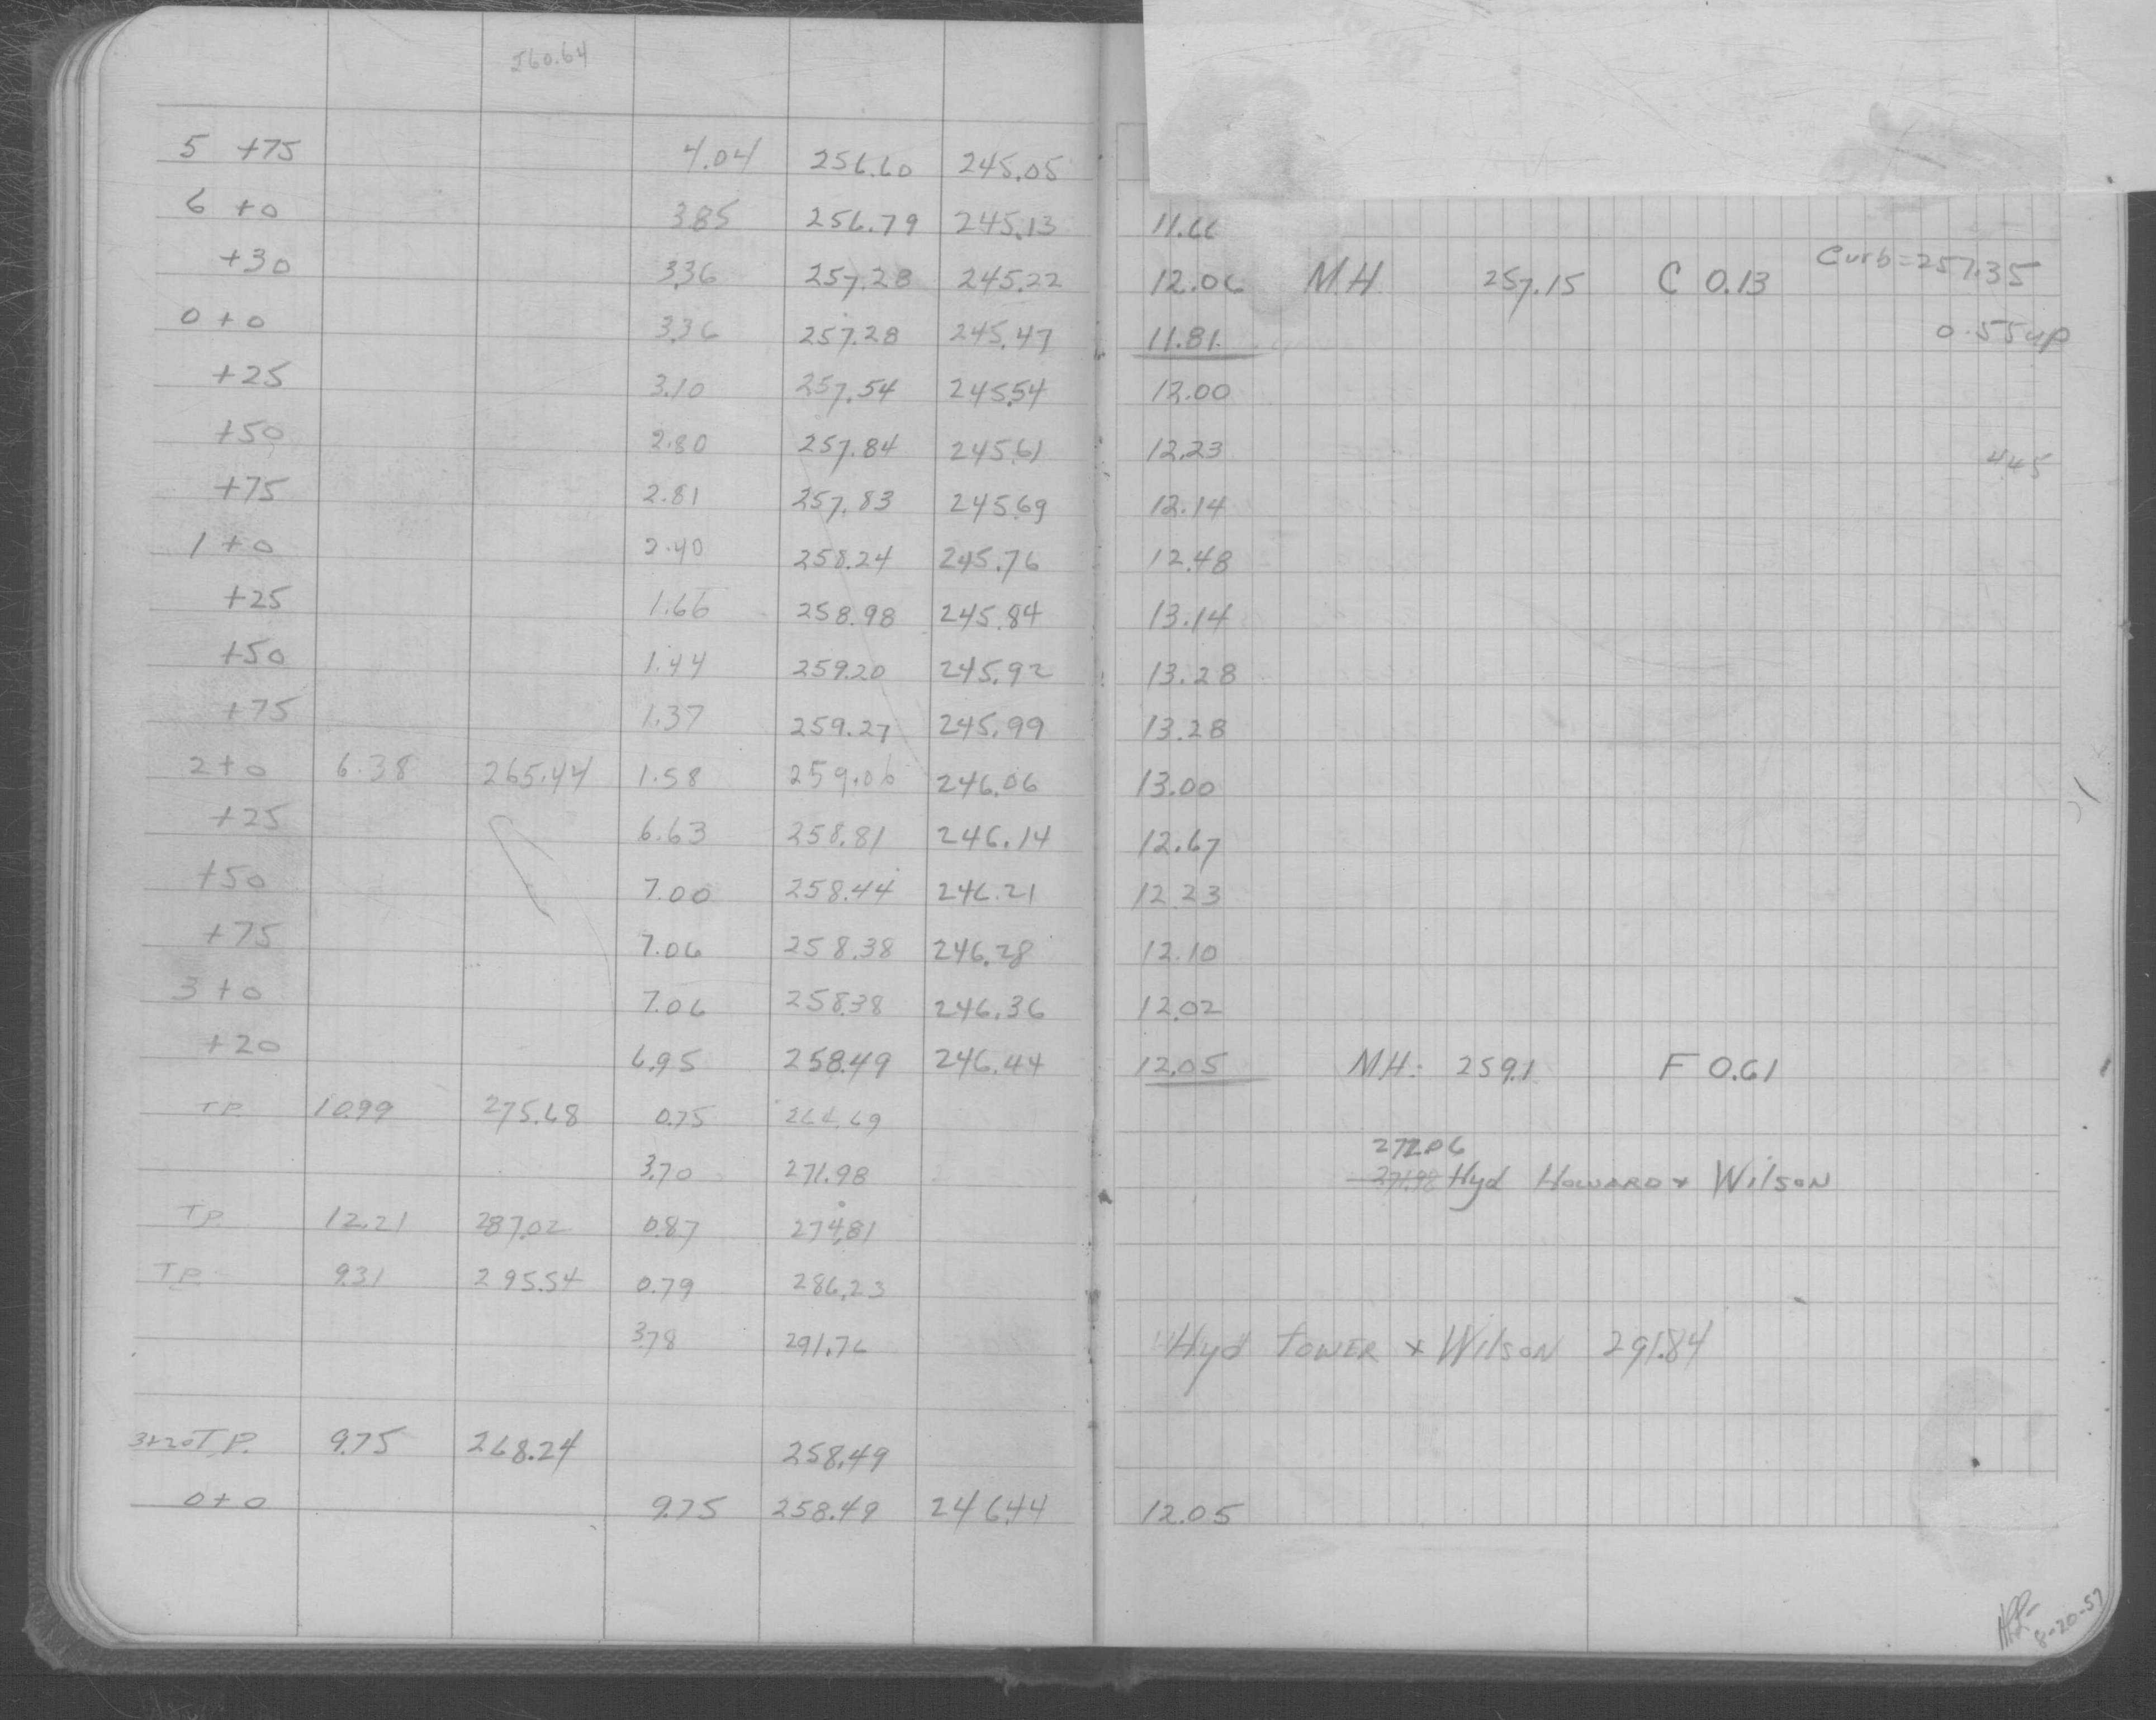 260.64
5 +75 4.04 256.60 245.05
6 +0 3.85 256.79 245.13 11.66
+30 3.36 257.28 245.22 12.06 M.H. 257.15 C 0.13 Curb=257.35
0+0 3.36 257.28 245.47 11.81 0.55 up
+25 3.10 257.54 245.54 12.00
+50 2.80 257.84 245.61 12.23 4.45
+75 2.81 257.83 245.69 12.14
1+0 2.40 258.24 245.76 12.48
+25 1.66 258.98 245.84 13.14
+50 1.44 259.20 245.92 13.28
+75 1.37 259.27 245.99 13.28
2+0 6.38 265.44 1.58 259.06 246.06 13.00
+25 6.63 258.81 246.14 12.67
+50 7.00 258.44 246.21 12.23
+75 7.06 258.38 246.28 12.10
3+0 7.06 258.38 246.36 12.02
+20 6.95 258.49 246.44 12.05 MH: 259.1 F 0.61
T.P. 10.99 275.68 0.75 264.69
272.06
3.70 271.98 271.98 Hyd Howard + Wilson
T.P. 12.21 287.02 0.87 274.81
T.P. 9.31 295.54 0.79 286.23
3.78 291.76 Hyd Tower + Wilson 291.84
3+20 T.P. 9.75 268.24 258.49
0+0 9.75 258.49 246.44 12.05
8-20-57